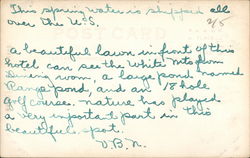 This spring water is shipped all
over the U.S.
a beautiful lawn in front of this
hotel can see the White Mts from
Dining room, a large pond named
Range pond, and an 18 hole
golf course. nature has played
a very important part in this
beautiful spot.
V.B.N.